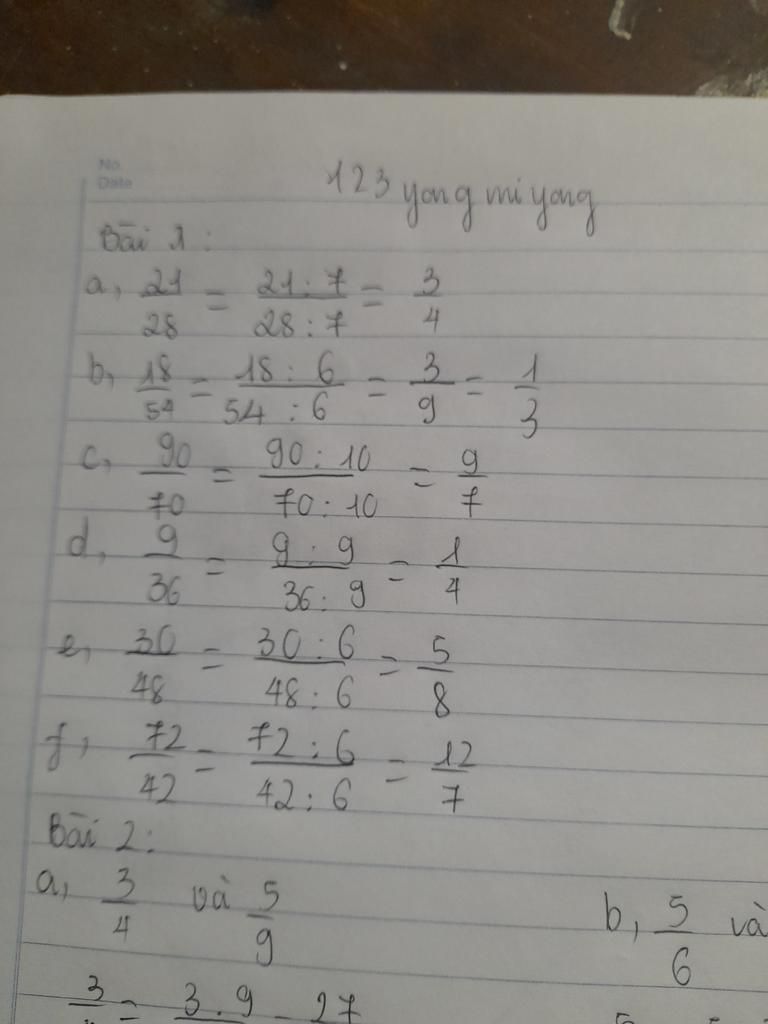 No.
Date
123 yong mi yong
Bài 1:
a, 21/28 = 21:7/28:7 = 3/4
b, 18/54 = 18:6/54:6 = 3/9 = 1/3
c, 90/70 = 90:10/70:10 = 9/7
d, 9/36 = 9:9/36:9 = 1/4
e, 30/48 = 30:6/48:6 = 5/8
f, 72/42 = 72:6/42:6 = 12/7
Bài 2:
a, 3/4 và 5/9 b, 5/6 và
3 = 3.9 = 27